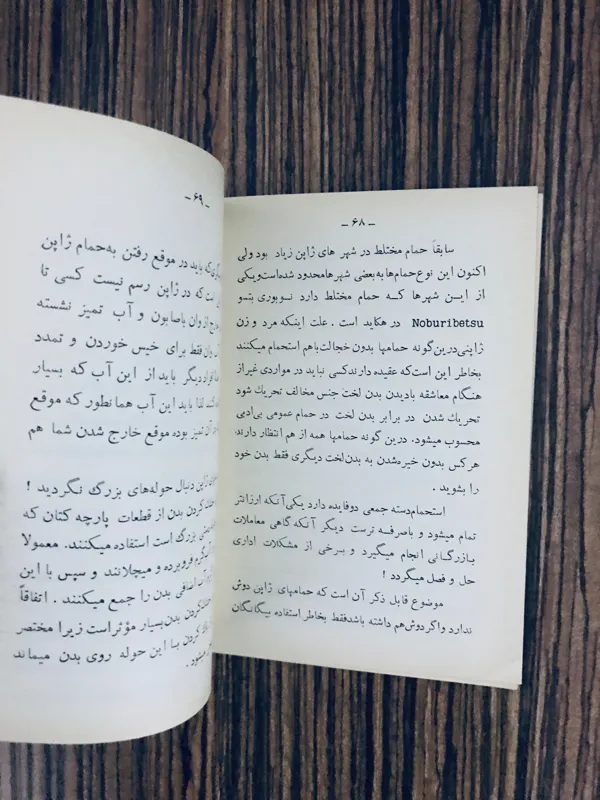 ـ ۶۸ ـ
سابقاً حمام مختلط در شهر های ژاپن زیاد بود ولی
اکنون این نوع حمام‌ها به بعضی شهرها محدود شده‌است ویکی
از ایسن شهرها کــه حمام مختلط دارد نــوبوری بتسو
Noburibetsu در هکاید است . علت اینکه مرد و زن
ژاپنی درین‌گونه حمامها بدون خجالت باهم استحمام میکنند
بخاطر این‌است‌که عقیده دارندکسی نباید در مواردی غیر از
هنگام معاشقه بادیدن بدن لخت جنس مخالف تحریك شود
تحریك شدن در برابر بدن لخت در حمام عمومی بی‌ادبی
محسوب میشود. درین گونه حمامها همه از هم انتظار دارند
هرکس بدون خیره‌شدن به بدن‌لخت دیگری فقط بدن خود
را بشوید .
استحمام‌دسته جمعی دوفایده دارد یکی‌آنکه ارزانتر
تمام میشود و باصرفه ترست دیگر آنکه گاهی معاملات
بازرگانی انجام میگیرد و برخی از مشکلات اداری
حل و فصل میگردد !
موضوع قابل ذکر آن است که حمامهای ژاپن دوش
ندارد واگردوش‌هم داشته باشدفقط بخاطر استفاده بیگانگان
ـ ۶۹ ـ
باید در موقع رفتن به‌حمام ژاپن
است که در ژاپن رسم نیست کسی تا
از وان باصابون و آب تمیز نشسته
وان فقط برای خیس خوردن و تمدد
دیگر باید از این آب که بسیار
لذا باید این آب همانطور که موقع
آن تمیز بوده موقع خارج شدن شما هم
ژاپن دنبال حوله‌های بزرگ نگردید !
کردن بدن از قطعات پارچه کتان که
بزرگ است استفاده میکنند. معمولا
فروبرده و میچلانند و سپس با این
اضافی بدن را جمع میکنند . اتفاقاً
کردن بدن بسیار مؤثراست زیرا مختصر
کردن بـا این حوله روی بدن میماند